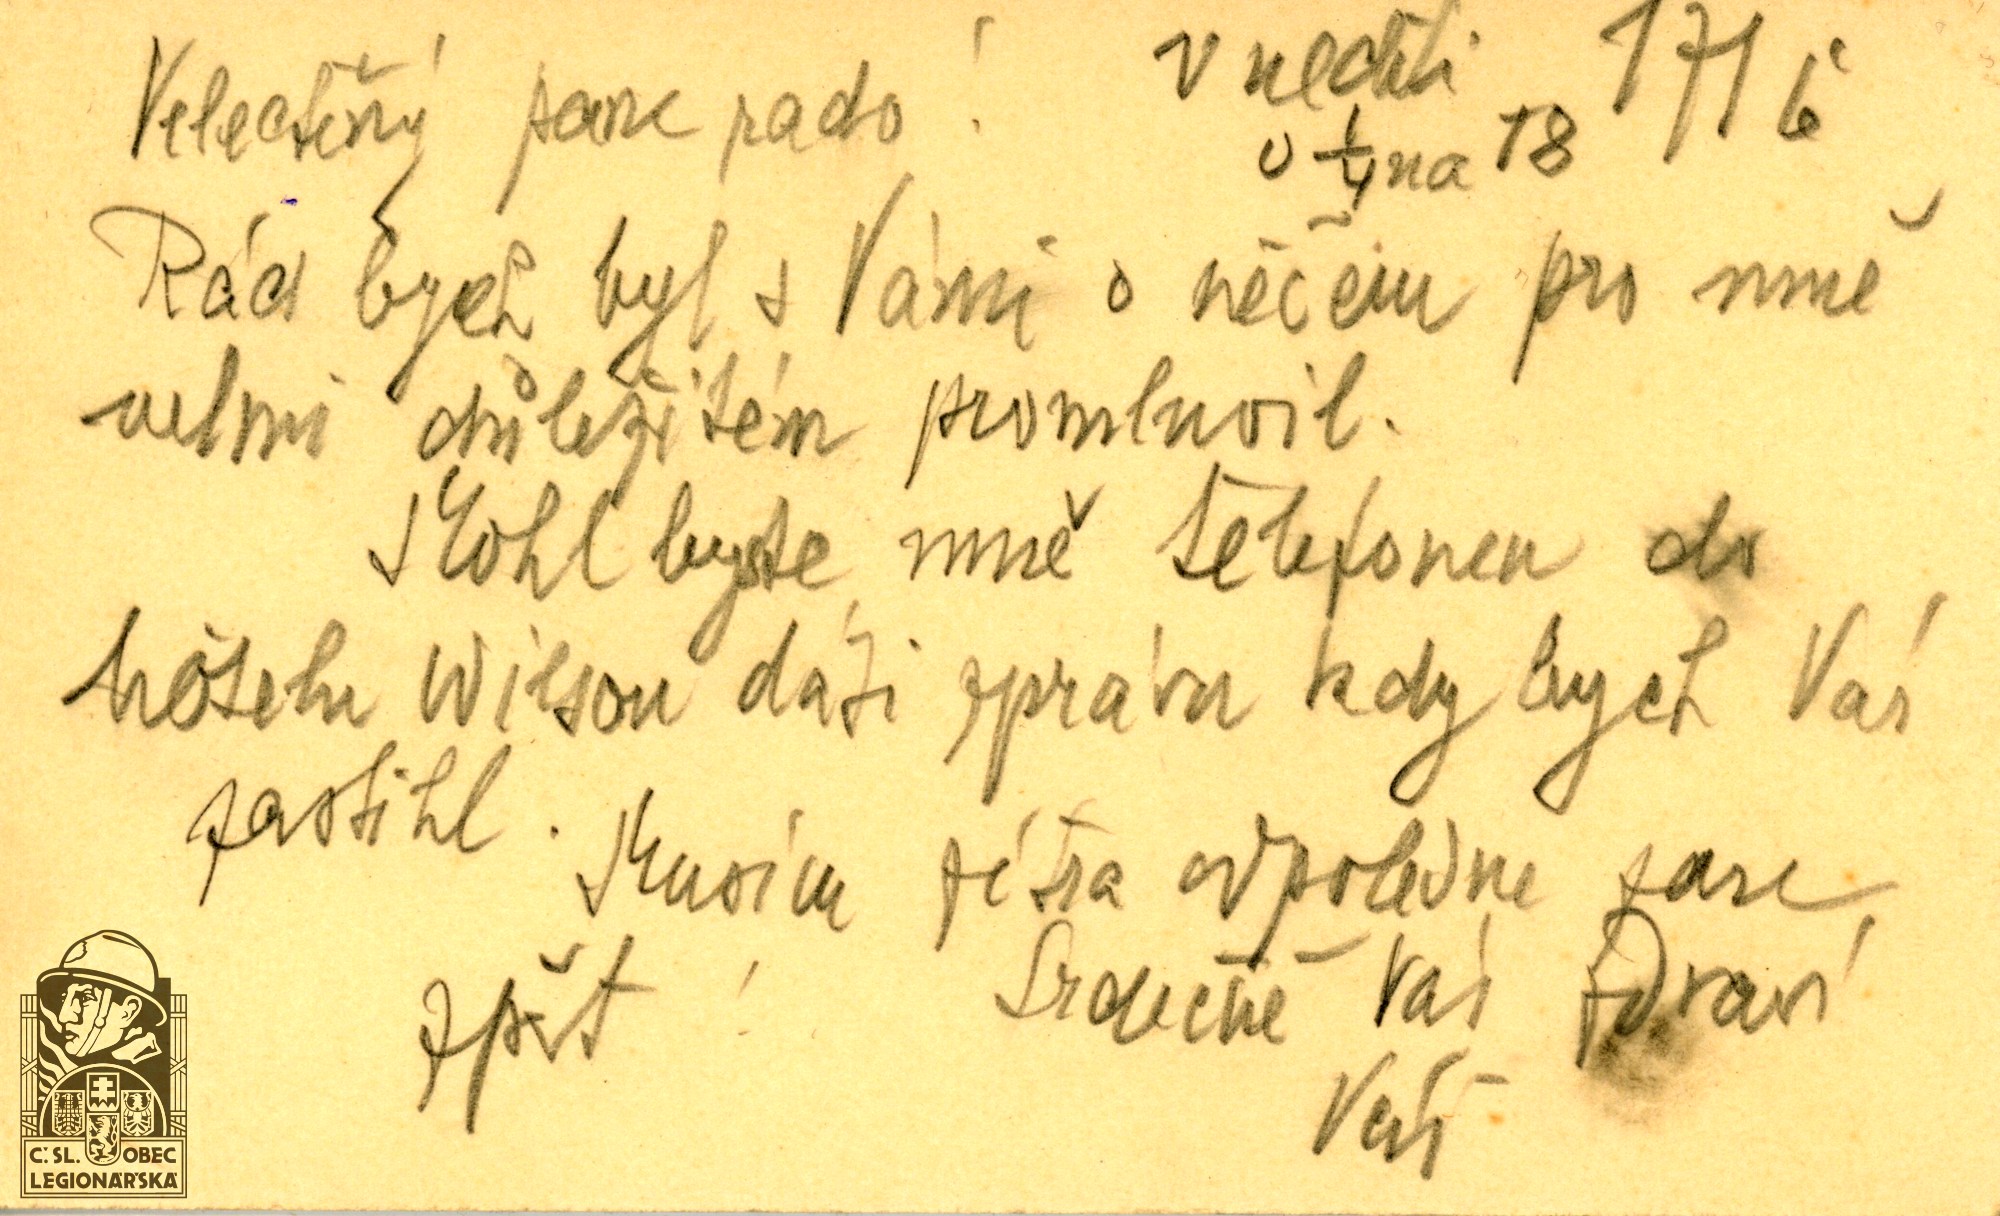 Velectěný pane rado! v neděli 17/6
o 1/4 na 18
Rád bych byl s Vámi o něčem pro mně
velmi důležitém promluvil.
Mohl byste mně telefonem do
hôtelu Wilson dáti zprávu kdy bych Vás
zastihl. Musím zítra odpoledne zase
zpět! Srdečně Vás zdraví
Váš
Č. SL. OBEC
LEGIONÁŘSKÁ